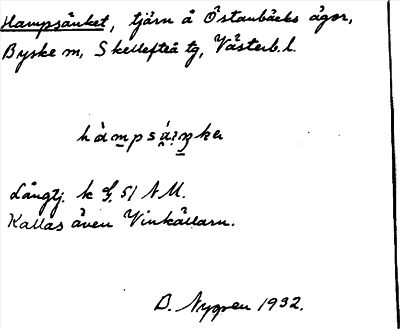 Hampsänket, tjärn å Östanbäcks ägor,
Byske sn, Skellefteå tg, Västerb. l.
Långtj. k 51 NM.
Kallas även Vinkällarn.
B. Nygren 1932.